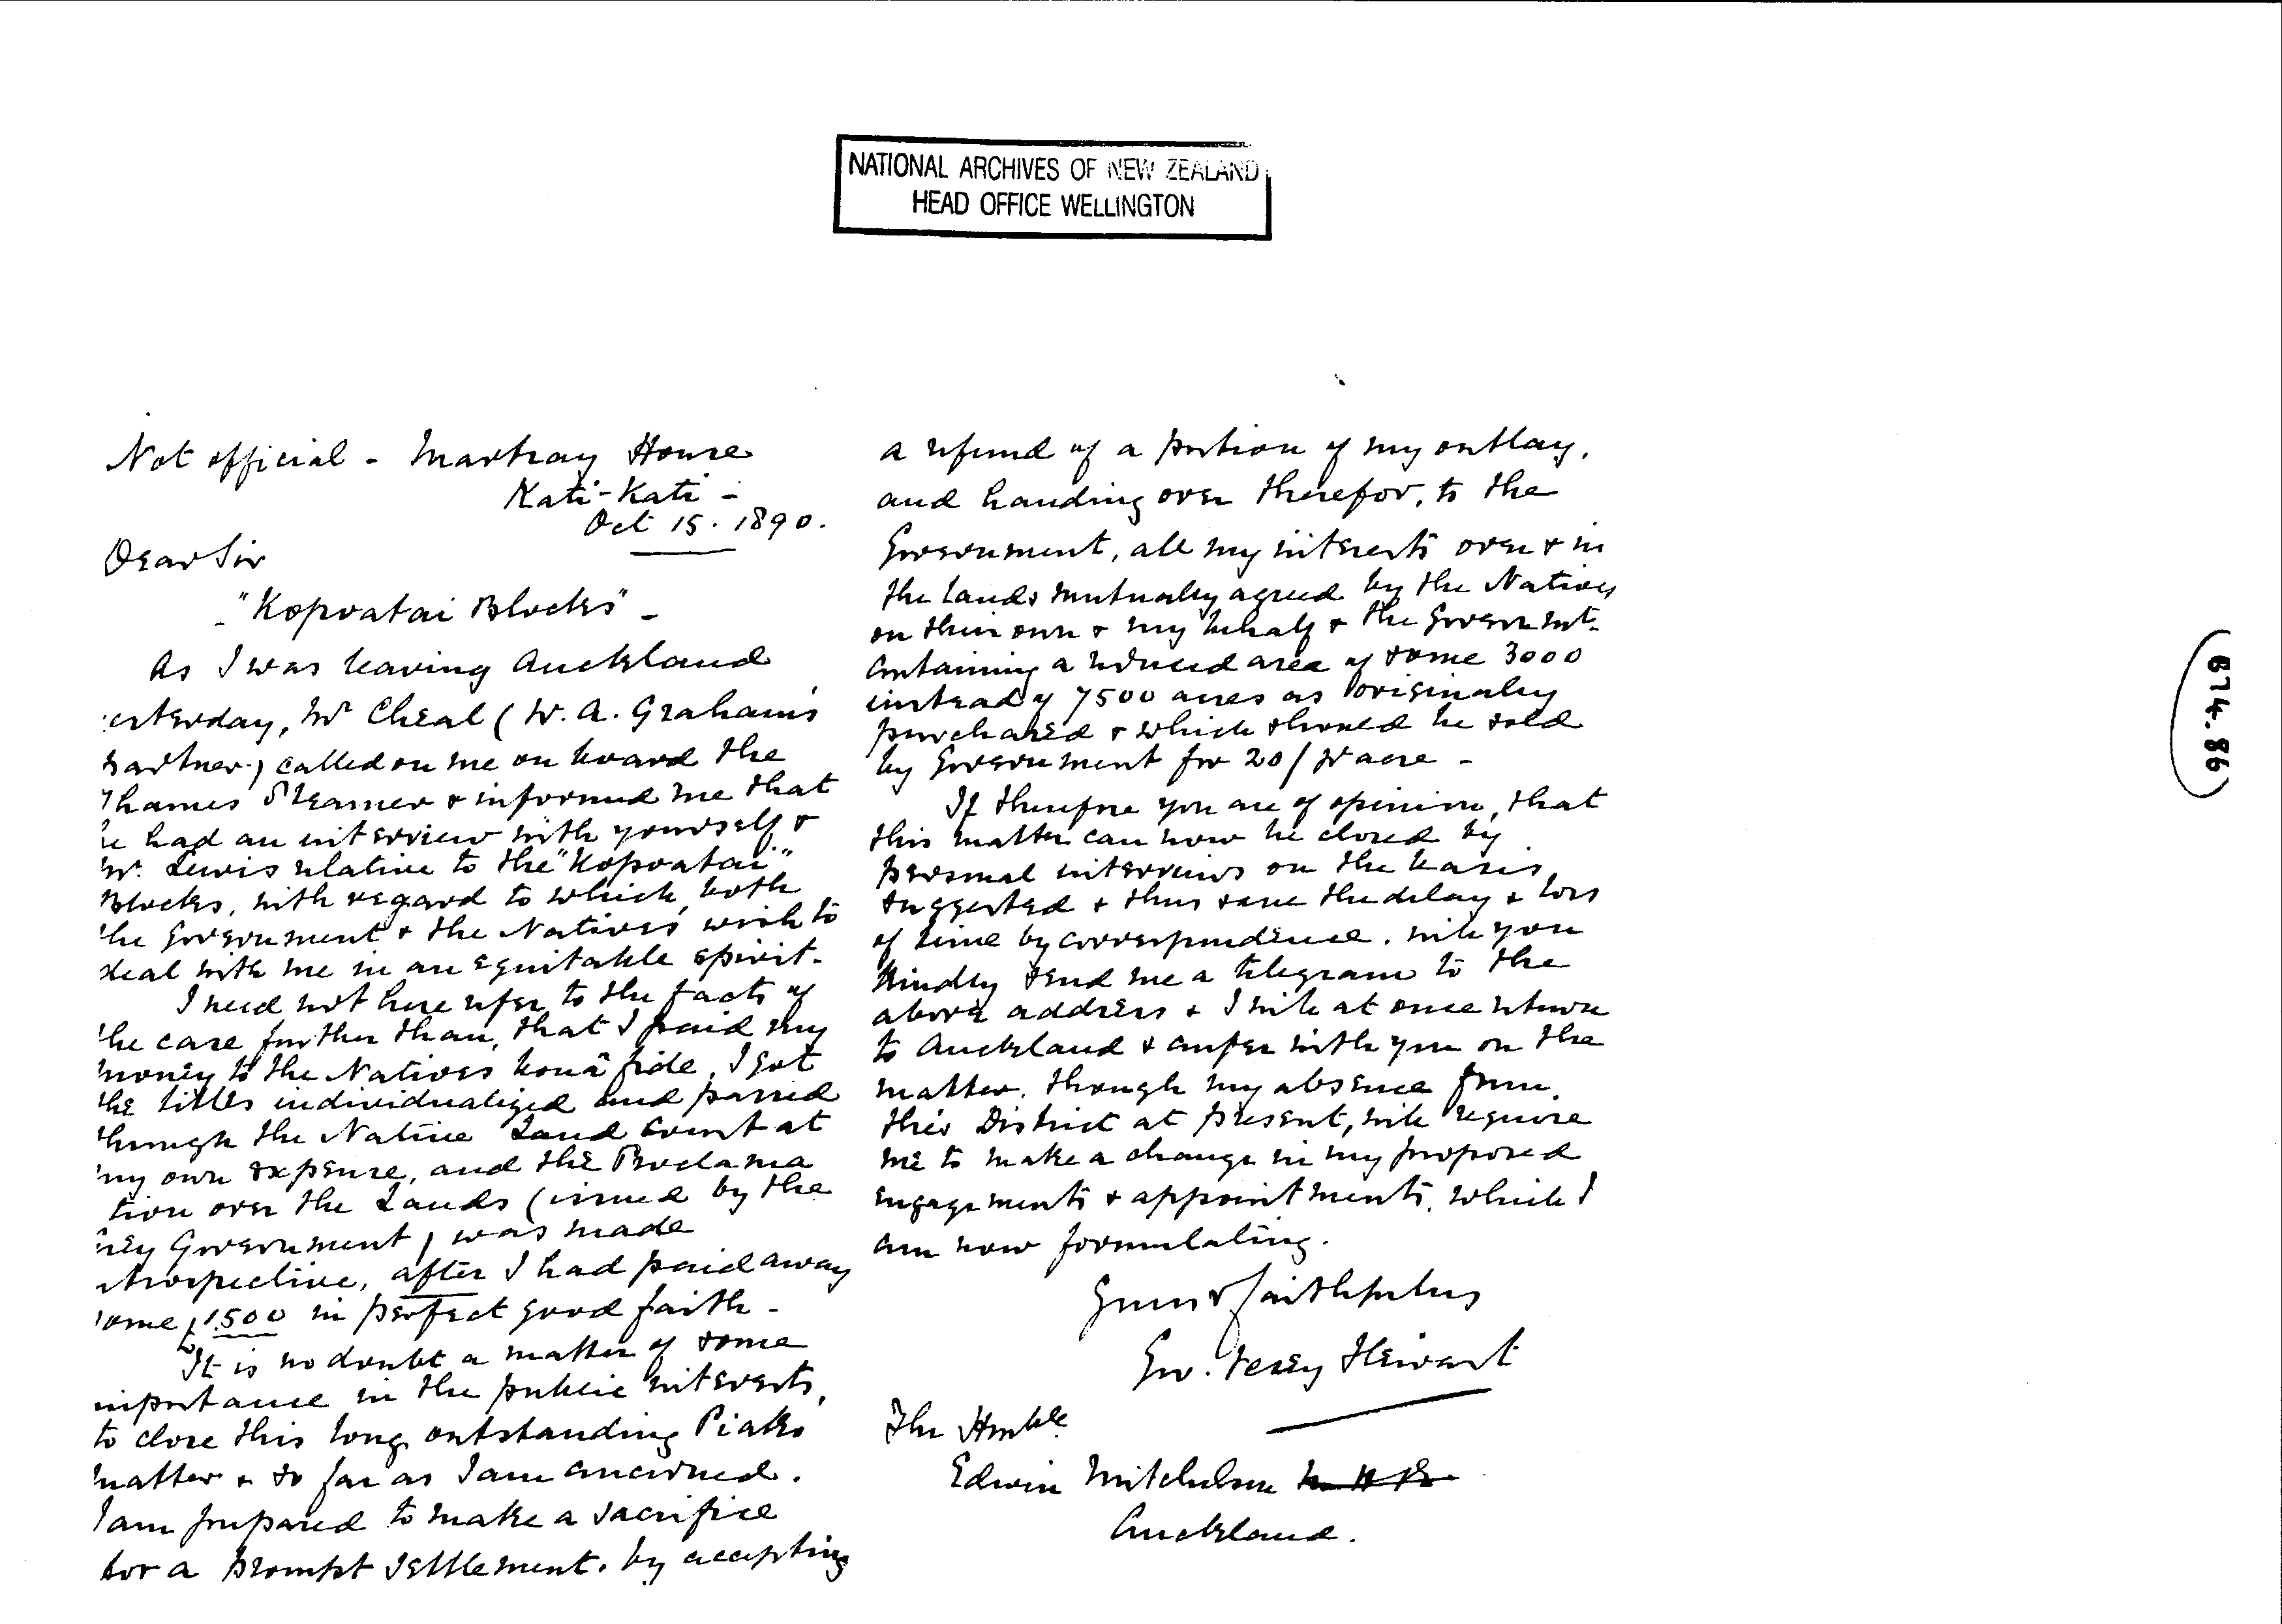 NATIONAL ARCHIVES OF NEW ZEALAND
HEAD OFFICE WELLINGTON
Not official - Martray House
Kati-Kati -
Oct 15. 1890.
Dear Sir
"Kopoatai Blocks" -
As I was leaving Auckland
esterday, Mr Cheal (W. A. Graham's
partner) called on me on board the
Thames Steamer & informed me that
he had an interview with yourself &
Mr. Lewis relative to the "Kopoatai"
Blocks, with regard to which, both
the Government & the Natives wish to
deal with me in an equitable spirit.
I need not here refer to the facts of
the case further than, that I paid my
money to the Natives bonâ fide, I got
the titles individualized and passed
through the Native Land Court at
my own expense, and the Proclama
tion over the Lands (issued by the
rey Government) was made
etrospective, after I had paid away
some £1500 in perfect good faith -
It is no doubt a matter of some
importance in the public interests,
to close this long outstanding Piako
matter & so far as I am concerned.
I am prepared to make a sacrifice
for a prompt settlement. by accepting
a refund of a portion of my outlay,
and handing over therefor, to the
Government, all my interests over & in
the Lands mutually agreed by the Natives
on their own & my behalf & the Governmt.
containing a reduced area of some 3000
instead of 7500 acres as originally
purchased & which should be sold
by Government for 20/ pr acre -
If therefore you are of opinion, that
this matter can now be closed by
personal interviews on the basis
suggested & thus save the delay & loss
of time by correspondence. will you
kindly send me a telegram to the
above address & I will at once return
to Auckland & confer with you on the
matter. though my absence from
this District at present, will require
me to make a change in my proposed
engagements & appointments. which I
am now formulating.
Yours faithfully
Geo. Vesey Stewart
The Honble
Edwin Mitchelson M H R
Auckland.
674.86